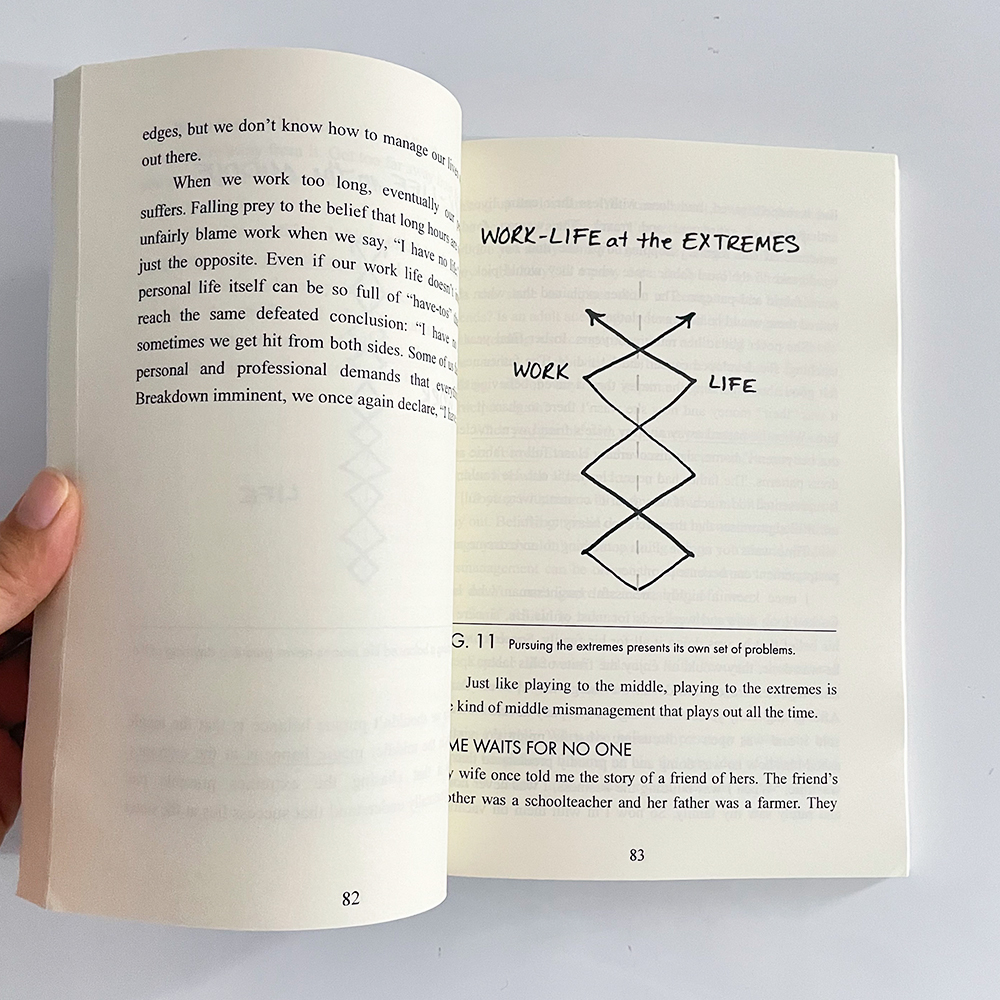 edges, but we don't know how to manage our lives
out there.
When we work too long, eventually our
suffers. Falling prey to the belief that long hours are
unfairly blame work when we say, “I have no life
just the opposite. Even if our work life doesn't
personal life itself can be so full of “have-tos”
reach the same defeated conclusion: “I have no
sometimes we get hit from both sides. Some of us
personal and professional demands that everything
Breakdown imminent, we once again declare, “I have
82
WORK-LIFE at the EXTREMES
WORK
LIFE
G. 11 Pursuing the extremes presents its own set of problems.
Just like playing to the middle, playing to the extremes is
kind of middle mismanagement that plays out all the time.
ME WAITS FOR NO ONE
wife once told me the story of a friend of hers. The friend's
other was a schoolteacher and her father was a farmer. They
83